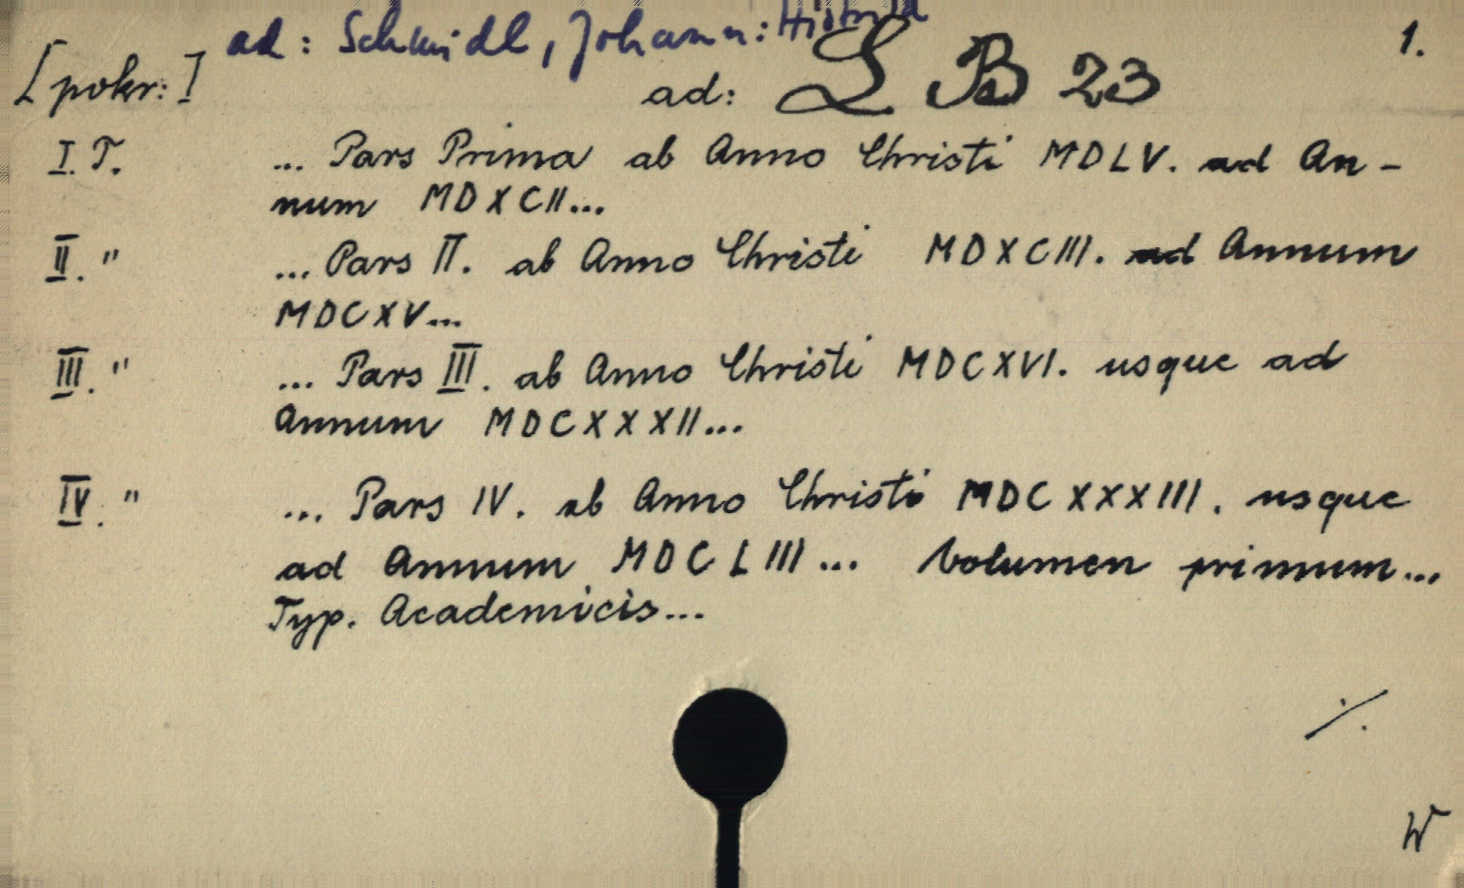 ad: Schmidl, Johann: Historia
1.
[pokr:] ad: L B 23
I. T. ... Pars Prima ab Anno Christi MDLV. ad An-
num MDXCII...
II. " ... Pars II. ab Anno Christi MDXCIII. ad Annum
MDCXV...
III. " ... Pars III. ab Anno Christi MDCXVI. usque ad
Annum MDCXXXII...
IV. " ... Pars IV. ab Anno Christi MDCXXXIII. usque
ad Annum MDCLIII... Volumen primum...
Typ. Academicis...
./.
W